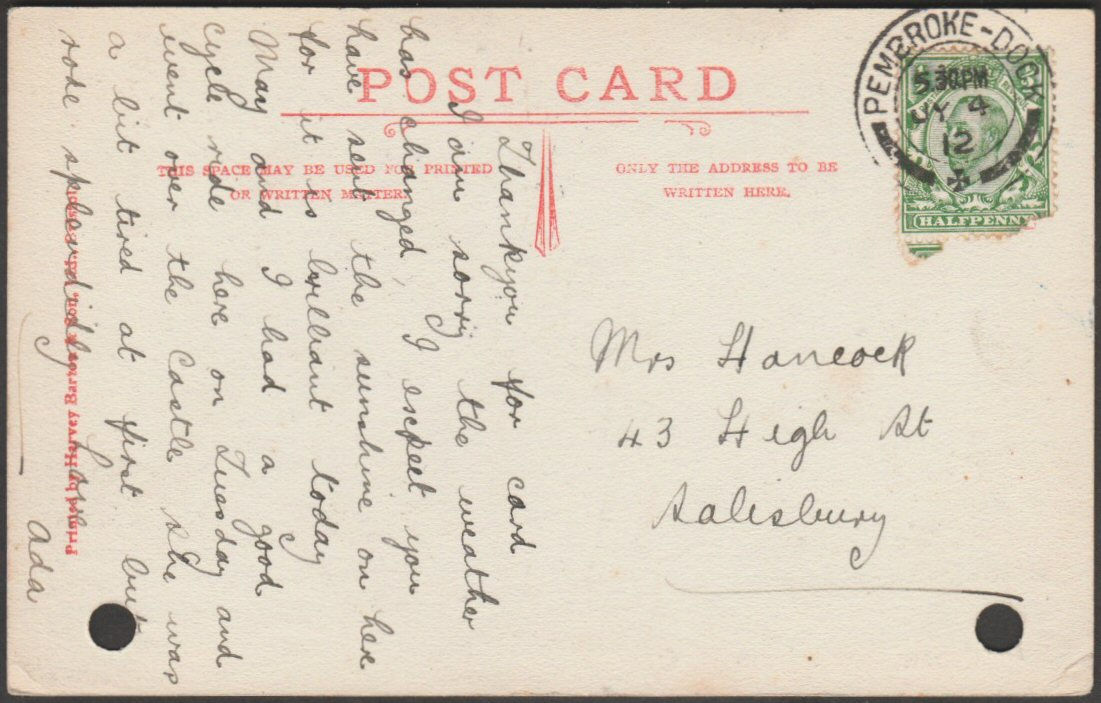 POST CARD
THIS SPACE MAY BE USED FOR PRINTED
OR WRITTEN MATTER.
ONLY THE ADDRESS TO BE
WRITTEN HERE.
PEMBROKE-DOCK
5.30PM
JY 4
12
HALFPENNY
Mrs Hancock
43 High St
Salisbury
Thankyou for card
I am sorry the weather
has changed, I expect you
have sent the sunshine on here
for it is brilliant today
May and I had a good
cycle ride here on Tuesday and
went over the Castle she was
a bit tired at first but
rode splendidly Love
Ada
Printed by Harvey Barton & Son, Ltd., Bristol.